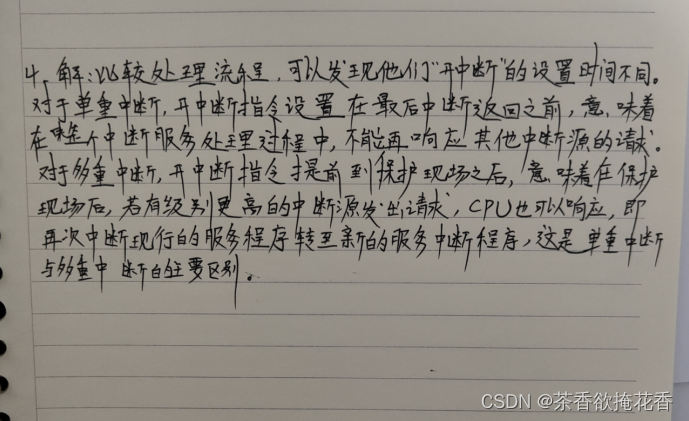 4. 解:比较处理流程,可以发现他们“开中断”的设置时间不同。
对于单重中断,开中断指令设置在最后中断返回之前,意味着
在整个中断服务处理过程中,不能再响应其他中断源的请求。
对于多重中断,开中断指令提前到保护现场之后,意味着在保护
现场后,若有级别更高的中断源发出请求,CPU也可以响应,即
再次中断现行的服务程序转至新的服务中断程序,这是单重中断
与多重中断的主要区别。
CSDN @茶香欲掩花香